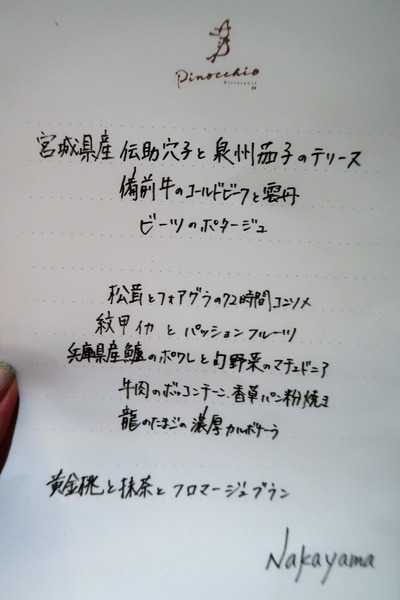 Pinocchio
宮城県産 伝助穴子と泉州茄子のテリーヌ
備前牛のコールドビーフと雲丹
ビーツのポタージュ
松茸とフォアグラの72時間コンソメ
紋甲イカ と パッションフルーツ
兵庫県産鱸のポワレと旬野菜のマチェドニア
牛肉のボッコンチーニ.香草パン粉焼き
龍のたまごの濃厚カルボナーラ
黄金桃と抹茶とフロマージュブラン
Nakayama